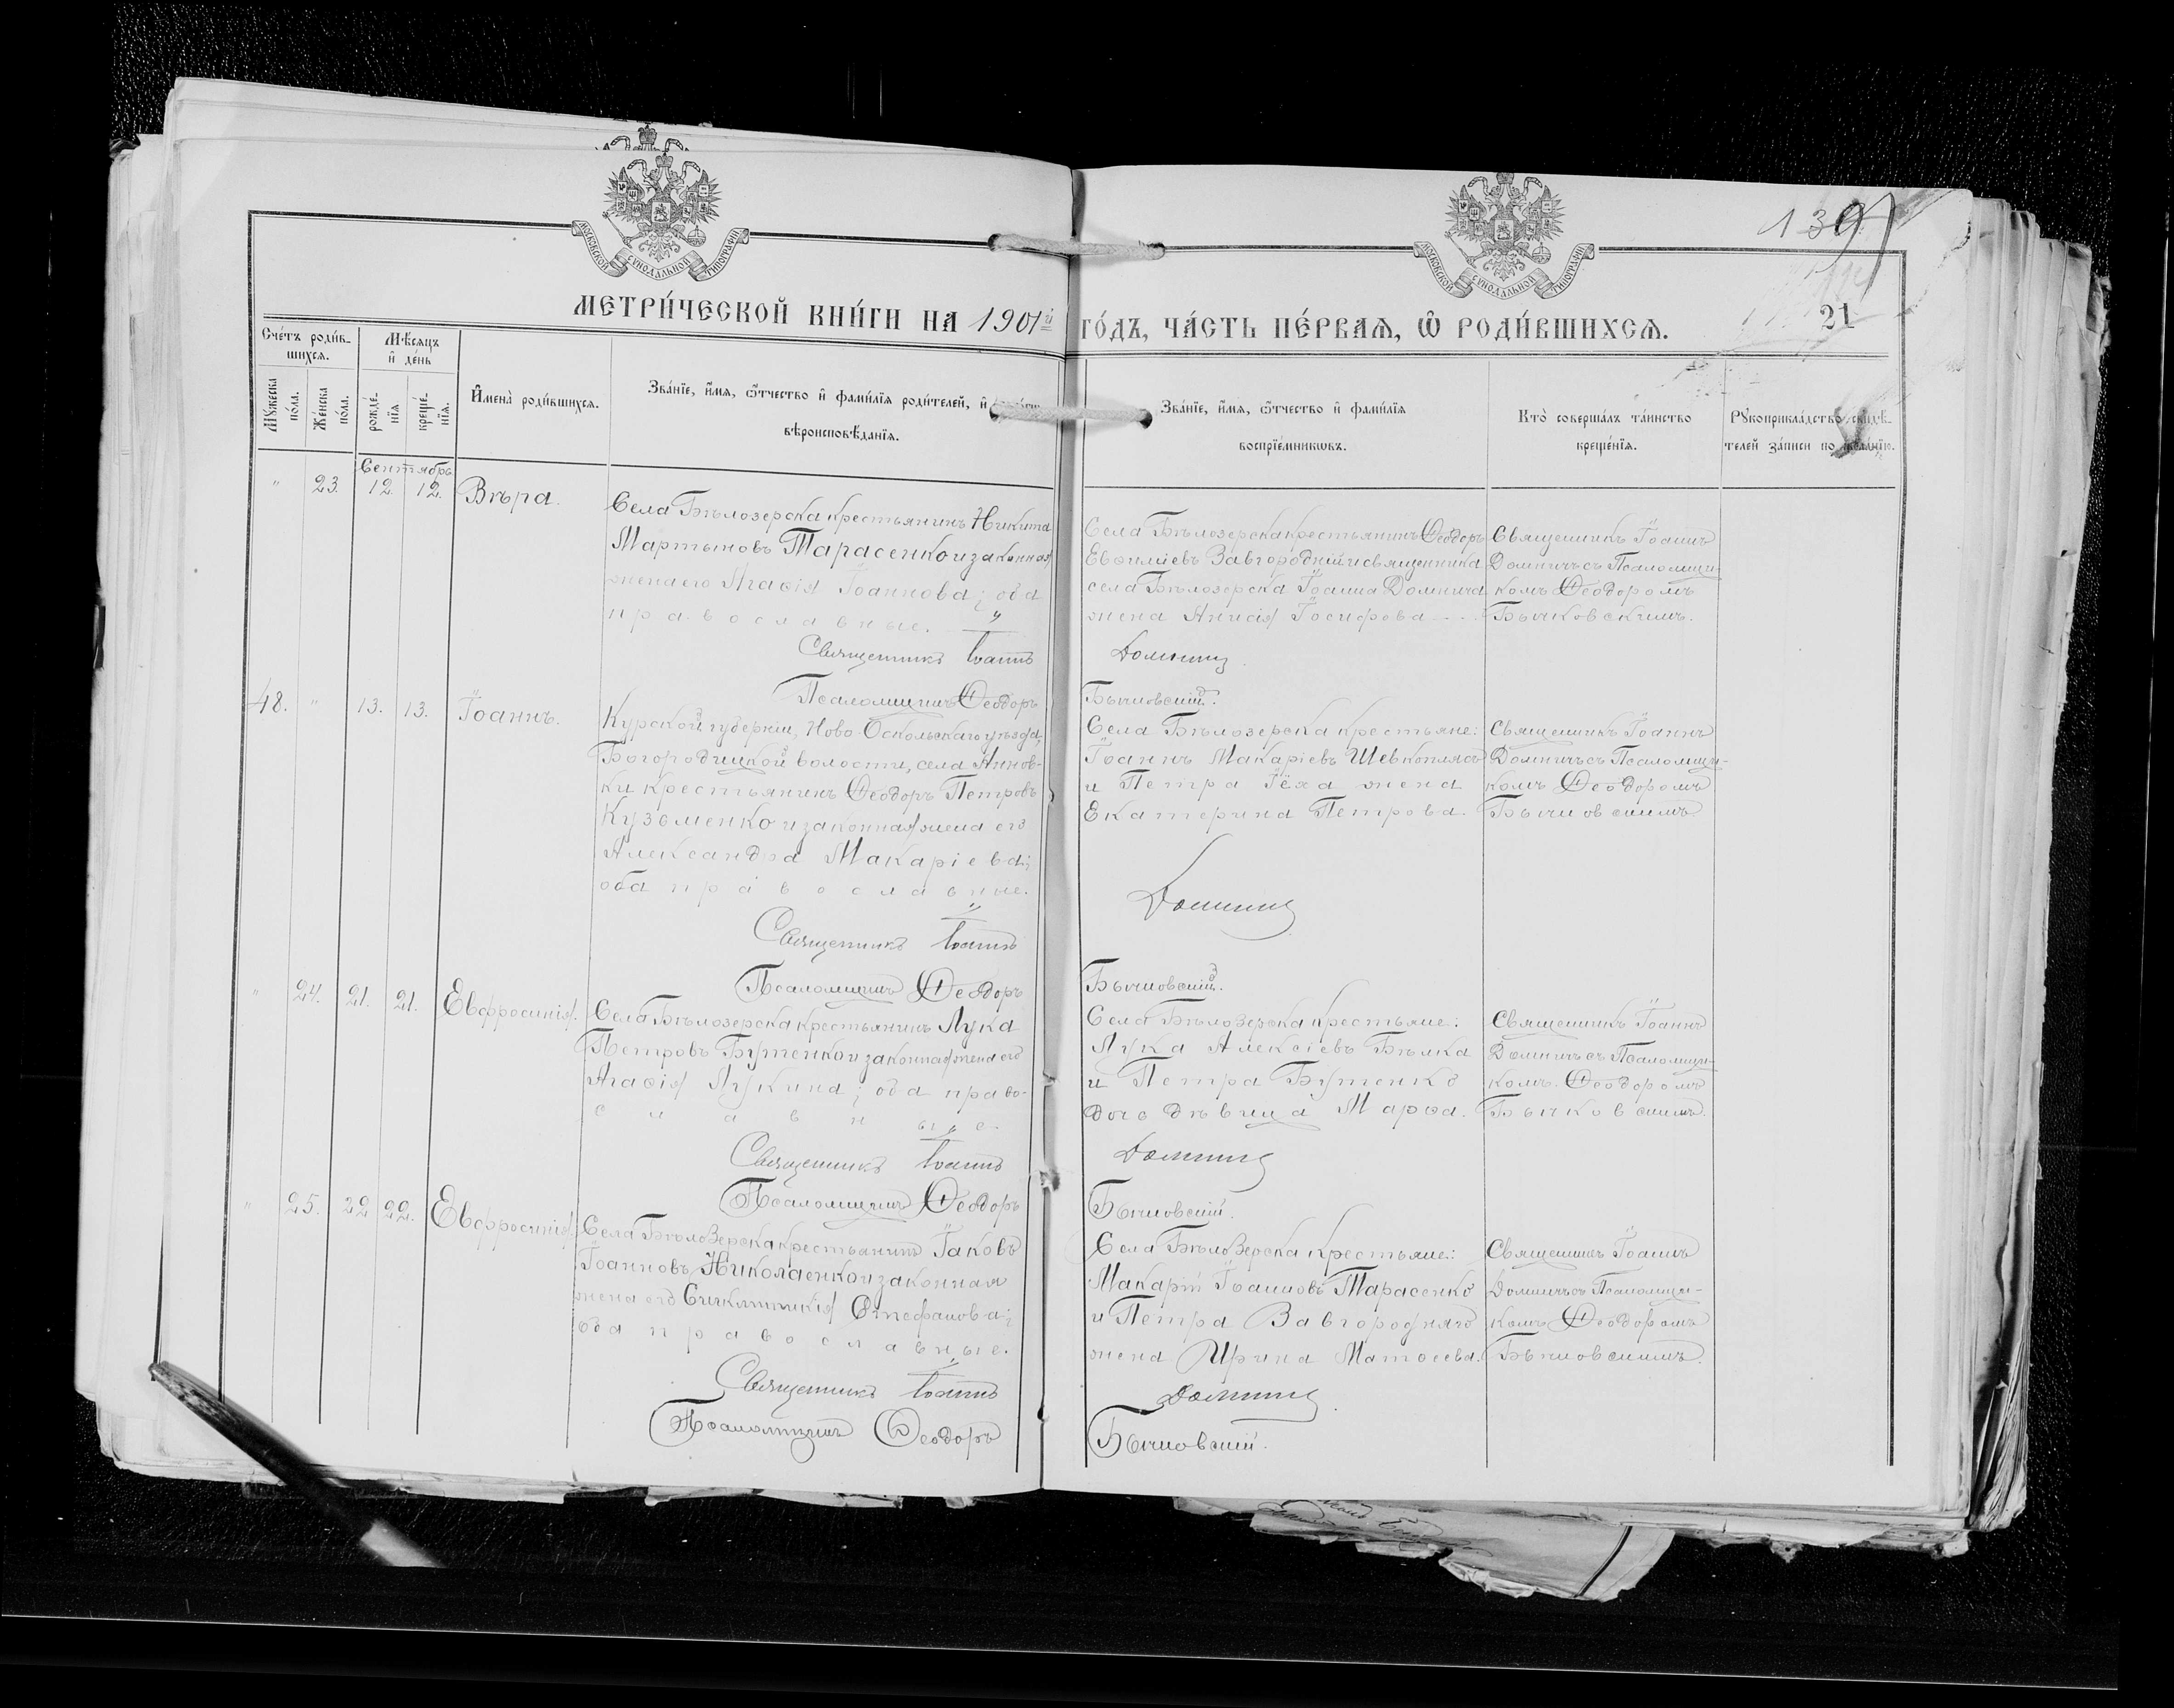 МОСКОВСКОЙ СѴНОДАЛЬНОЙ ТИПОГРАФІИ
МОСКОВСКОЙ СѴНОДАЛЬНОЙ ТИПОГРАФІИ
139
МЕТРИ́ЧЕСКОЙ КНИ́ГИ НА 1901й
ГО́ДЪ, ЧА́СТЬ ПЕ́РВАѦ, Ѡ РОДИ́ВШИХСѦ.
21
Сче́тъ роди́в-
шихся.
Мѣ́сяцъ
и де́нь
Мꙋ́жеска
по́ла.
Же́нска
по́ла.
рожде́-
нїѧ
креще́-
нїѧ.
И́мена̀ роди́вшихсѧ.
Зва́нїе, и́мѧ, ѻ́тчество и фами́лїѧ роди́телей, и
вѣроисповѣ́данїѧ.
Зва́нїе, и́мѧ, ѻ́тчество и фами́лїѧ
воспрїе́мникѡвъ.
Кто̀ соверша́лъ та́инство
креще́нїѧ.
Рꙋкоприкла́дство свидѣ́-
телей за́писи по жела́нїю.
Сентябрь
" 23. 12. 12. Вѣра.
Села Бѣлозерска крестьянинъ Никита
Мартыновъ Тарасенко и законная
жена его Агаѳія Іоаннова; оба
православные.
Священникъ Іоаннъ
Псаломщикъ Ѳеодоръ
Села Бѣлозерска крестьянинъ Ѳеодоръ
Евѳиміевъ Завгородній и священника
села Бѣлозерска Іоанна Домнича
жена Анисія Іосифова
Домничъ
Бычковскій.
Священникъ Іоаннъ
Домничъ съ Псаломщи-
комъ Ѳеодоромъ
Бычковскимъ.
48. " 13. 13. Іоаннъ.
Курской губерніи, Ново-Оскольскаго уѣзда,
Богородицкой волости, села Аннов-
ки крестьянинъ Ѳеодоръ Петровъ
Кузьменко и законная жена его
Александра Макаріева;
оба православные.
Священникъ Іоаннъ
Псаломщикъ Ѳеодоръ
Села Бѣлозерска крестьяне:
Іоаннъ Макаріевъ Шевкоплясъ
и Петра Гёха жена
Екатерина Петрова.
Домничъ
Бычковскій.
Священникъ Іоаннъ
Домничъ съ Псаломщи-
комъ Ѳеодоромъ
Бычковскимъ
" 24. 21. 21. Евфросинія.
Села Бѣлозерска крестьянинъ Лука
Петровъ Бутенко и законная жена его
Агаѳія Лукина; оба право-
славные.
Священникъ Іоаннъ
Псаломщикъ Ѳеодоръ
Села Бѣлозерска крестьяне:
Лука Алексіевъ Бѣлка
и Петра Бутенко
дочь дѣвица Марѳа.
Домничъ
Бычковскій.
Священникъ Іоаннъ
Домничъ съ Псаломщи-
комъ Ѳеодоромъ
Бычковскимъ.
" 25. 22 22. Евфросинія.
Села Бѣлозерска крестьянинъ Іаковъ
Іоанновъ Николаенко и законная
жена его Сигклитикія Стефанова;
оба православные.
Священникъ Іоаннъ
Псаломщикъ Ѳеодоръ
Села Бѣлозерска крестьяне:
Макарій Іоанновъ Тарасенко
и Петра Завгородняго
жена Ирина Матѳеева.
Домничъ
Бычковскій.
Священникъ Іоаннъ
Домничъ съ Псаломщи-
комъ Ѳеодоромъ
Бычковскимъ.